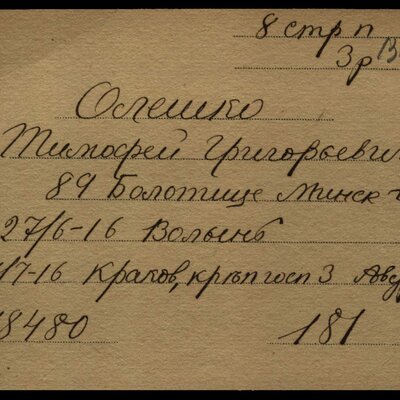 8 стр п
3 р
Олешко
Тимофей Григорьевич
89 Болотище Минск
27/6-16 Волынь
/7-16 Краков, крѣп госп 3 Авс
8480 181